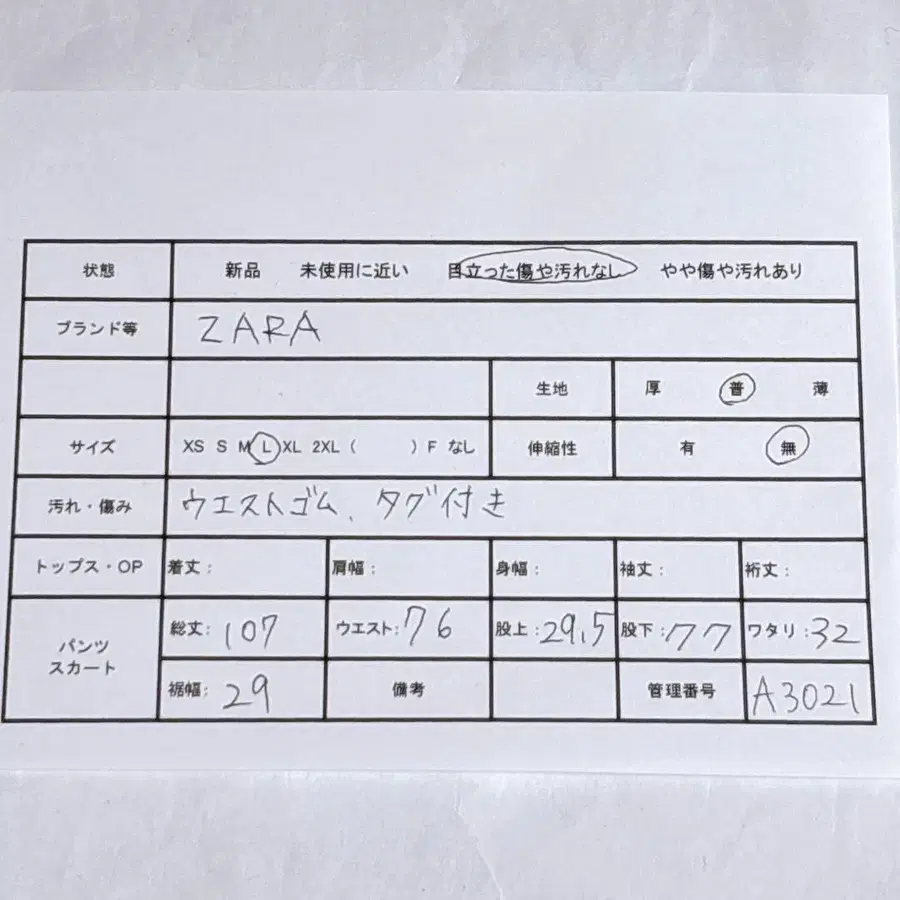 状態 新品 未使用に近い 目立った傷や汚れなし やや傷や汚れあり
ブランド等 ZARA
生地 厚 普 薄
サイズ XS S M L XL 2XL ( ) F なし 伸縮性 有 無
汚れ・傷み ウエストゴム、タグ付き
トップス・OP 着丈: 肩幅: 身幅: 袖丈: 裄丈:
パンツ スカート 総丈: 107 ウエスト: 76 股上: 29,5 股下: 77 ワタリ: 32
裾幅: 29 備考 管理番号 A3021